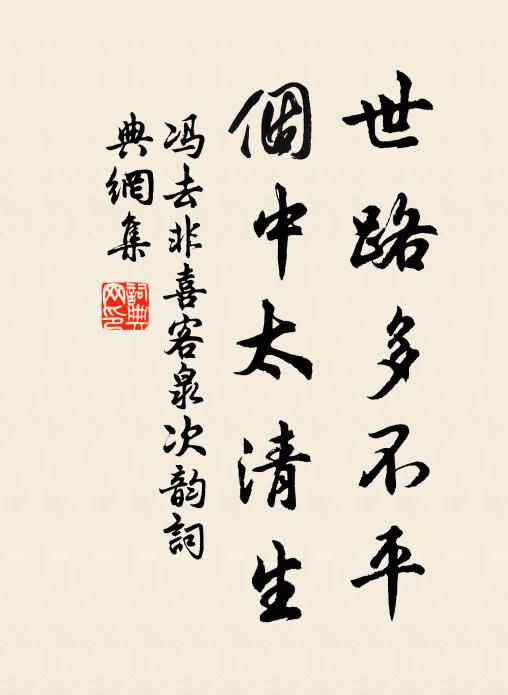 世路多不平
個中太清生
冯去非喜客泉次韵詞
典網集
詞典网印